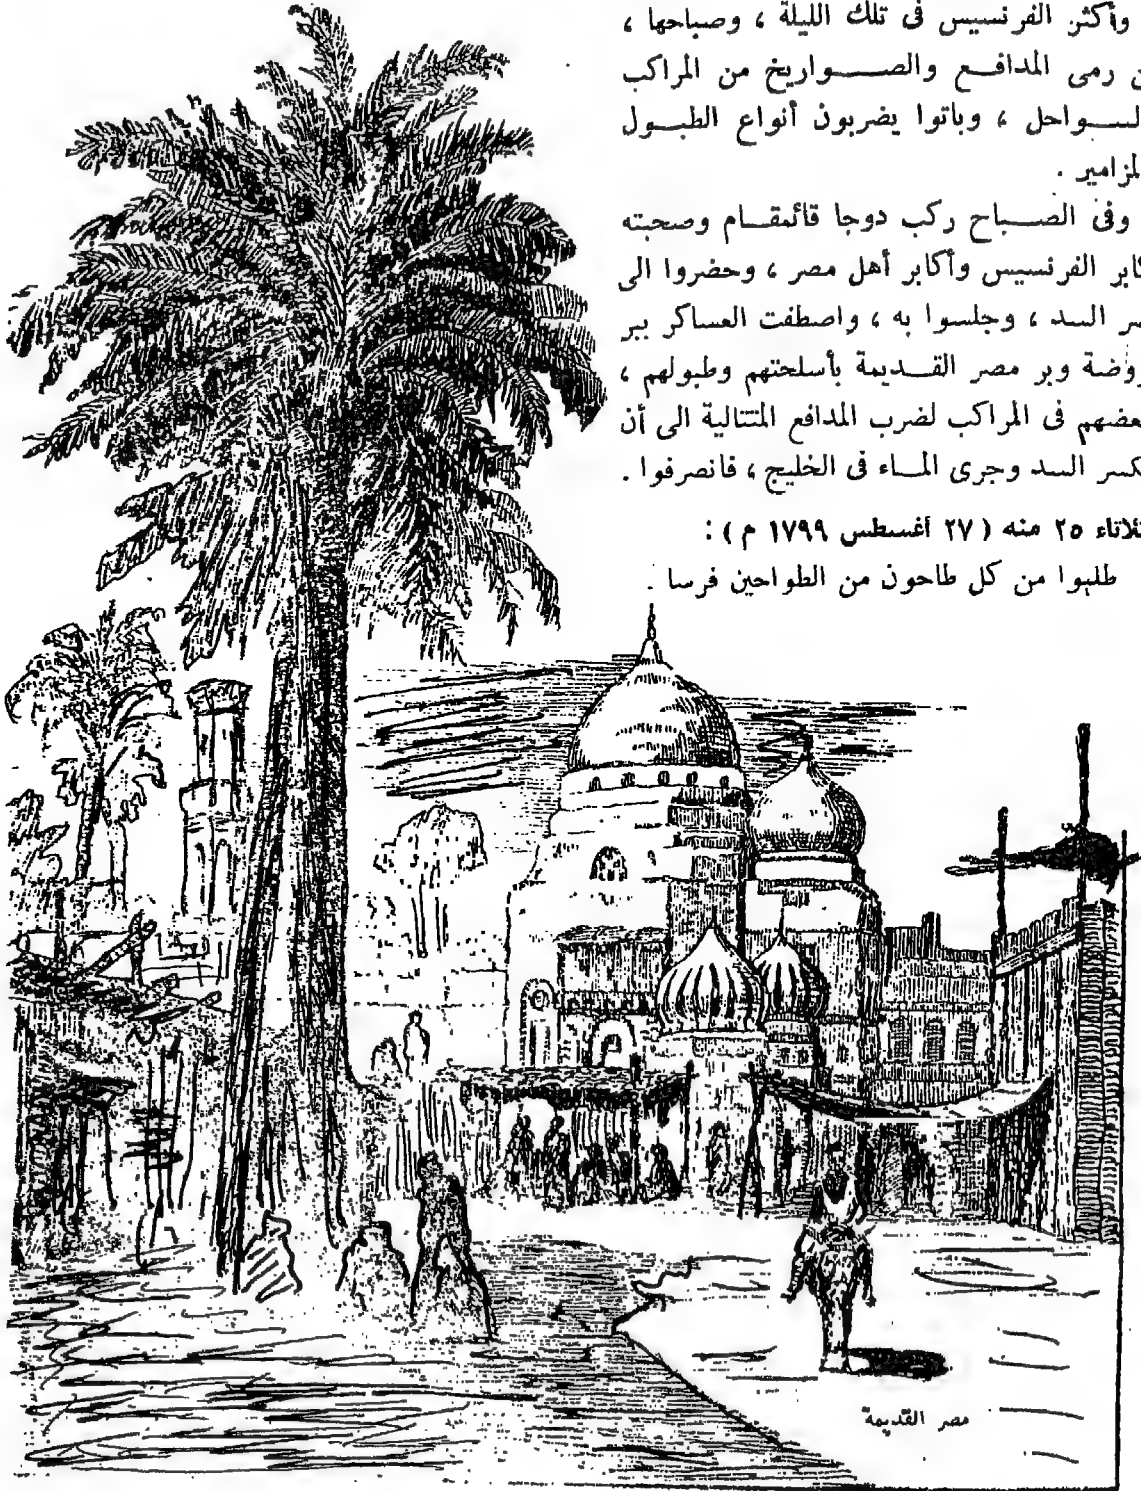 وأكثر الفرنسيس فى تلك الليلة ، وصباحها ،
رمى المدافع والصواريخ من المراكب
، وباتوا يضربون أنواع الطبول
.
وفى الصباح ركب دوجا قائمقام وصحبته
الفرنسيس وأكابر أهل مصر ، وحضروا الى
السد ، وجلسوا به ، واصطفت العساكر ببر
وبر مصر القديمة بأسلحتهم وطبولهم ،
فى المراكب لضرب المدافع المتتالية الى أن
السد وجرى الماء فى الخليج ، فانصرفوا .
٢٥ منه ( ٢٧ أغسطس ١٧٩٩ م ) :
طلبوا من كل طاحون من الطواحين فرسا .
مصر القديمة